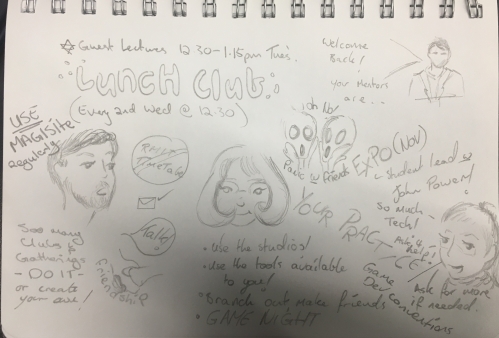 Guest Lectures 12.30-1.15pm Tue's.
LUNCH CLUB
(Every 2nd Wed @ 12.30)
Welcome
Back!
Your Mentors
are...
USE
MAGISITE
Regularly
Timetable
Talk!
Friendship
So many
Clubs &
Gatherings
- DO IT -
or create
your own!
oh No!
Panic w Friends
EXPO (Nov)
Student lead
John Power!
So much
Tech!
YOUR PRACTICE
• Use the studios!
• Use the tools available
to you!
Branch out, make friends
• GAME NIGHT
Ask 4
help!
Ask for more
if needed.
Game
Dev conventions